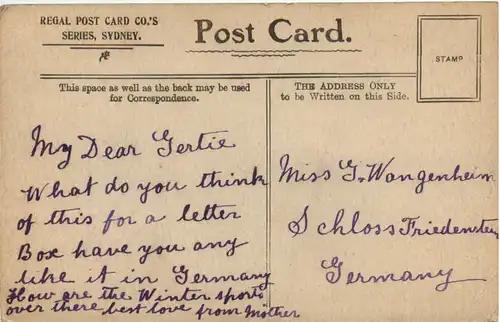 REGAL POST CARD CO.'S
SERIES, SYDNEY.
Post Card.
STAMP
This space as well as the back may be used
for Correspondence.
THE ADDRESS ONLY
to be Written on this Side.
My Dear Gertie
What do you think
of this for a letter
Box have you any
like it in Germany
How are the Winter sports
over there best love from Mother
Miss G. Wangenheim
Schloss Friedenstein
Germany